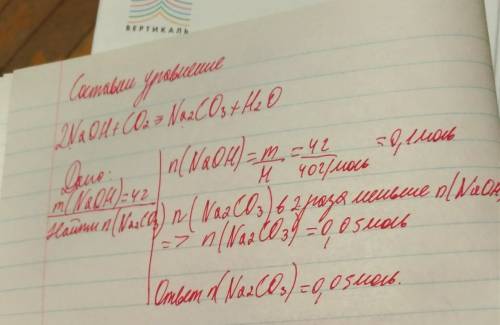 ВЕРТИКАЛЬ
Составим уравнение
2NaOH+CO2=Na2CO3+H2O
Дано:
m(NaOH)=4г
Найти n(Na2CO3)
n(NaOH)=m/M=4г/40г/моль=0,1моль
n(Na2CO3) в 2 раза меньше n(NaOH)
=> n(Na2CO3)=0,05моль
Ответ n(Na2CO3)=0,05моль.